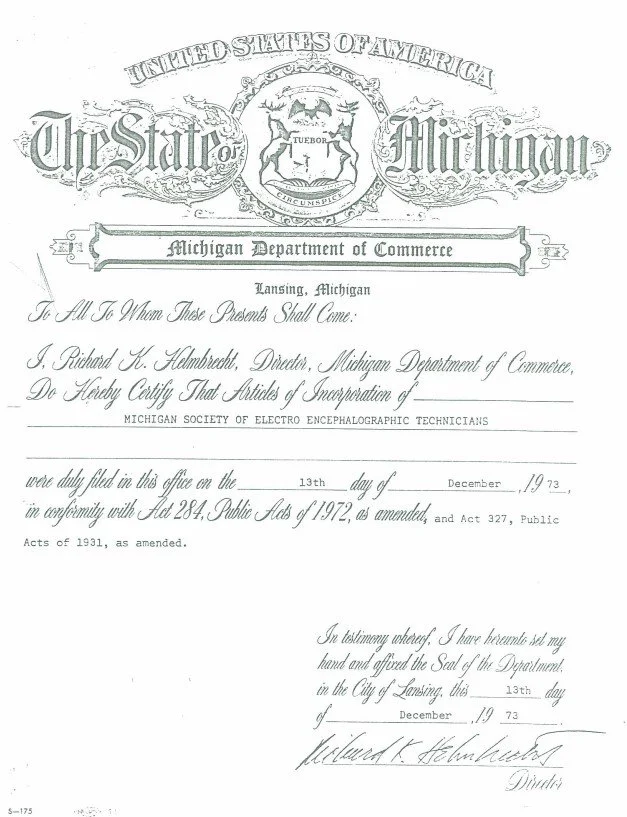 UNITED STATES OF AMERICA
The State of Michigan
TUEBOR
CIRCUMSPICE
Michigan Department of Commerce
Lansing, Michigan
To All To Whom These Presents Shall Come:
I, Richard K. Helmbrecht, Director, Michigan Department of Commerce,
Do Hereby Certify That Articles of Incorporation of
MICHIGAN SOCIETY OF ELECTRO ENCEPHALOGRAPHIC TECHNICIANS
were duly filed in this office on the 13th day of December, 1973,
in conformity with Act 284, Public Acts of 1972, as amended, and Act 327, Public
Acts of 1931, as amended.
In testimony whereof, I have hereunto set my
hand and affixed the Seal of the Department,
in the City of Lansing, this 13th day
of December, 19 73.
Richard K. Helmbrecht
Director
S—175